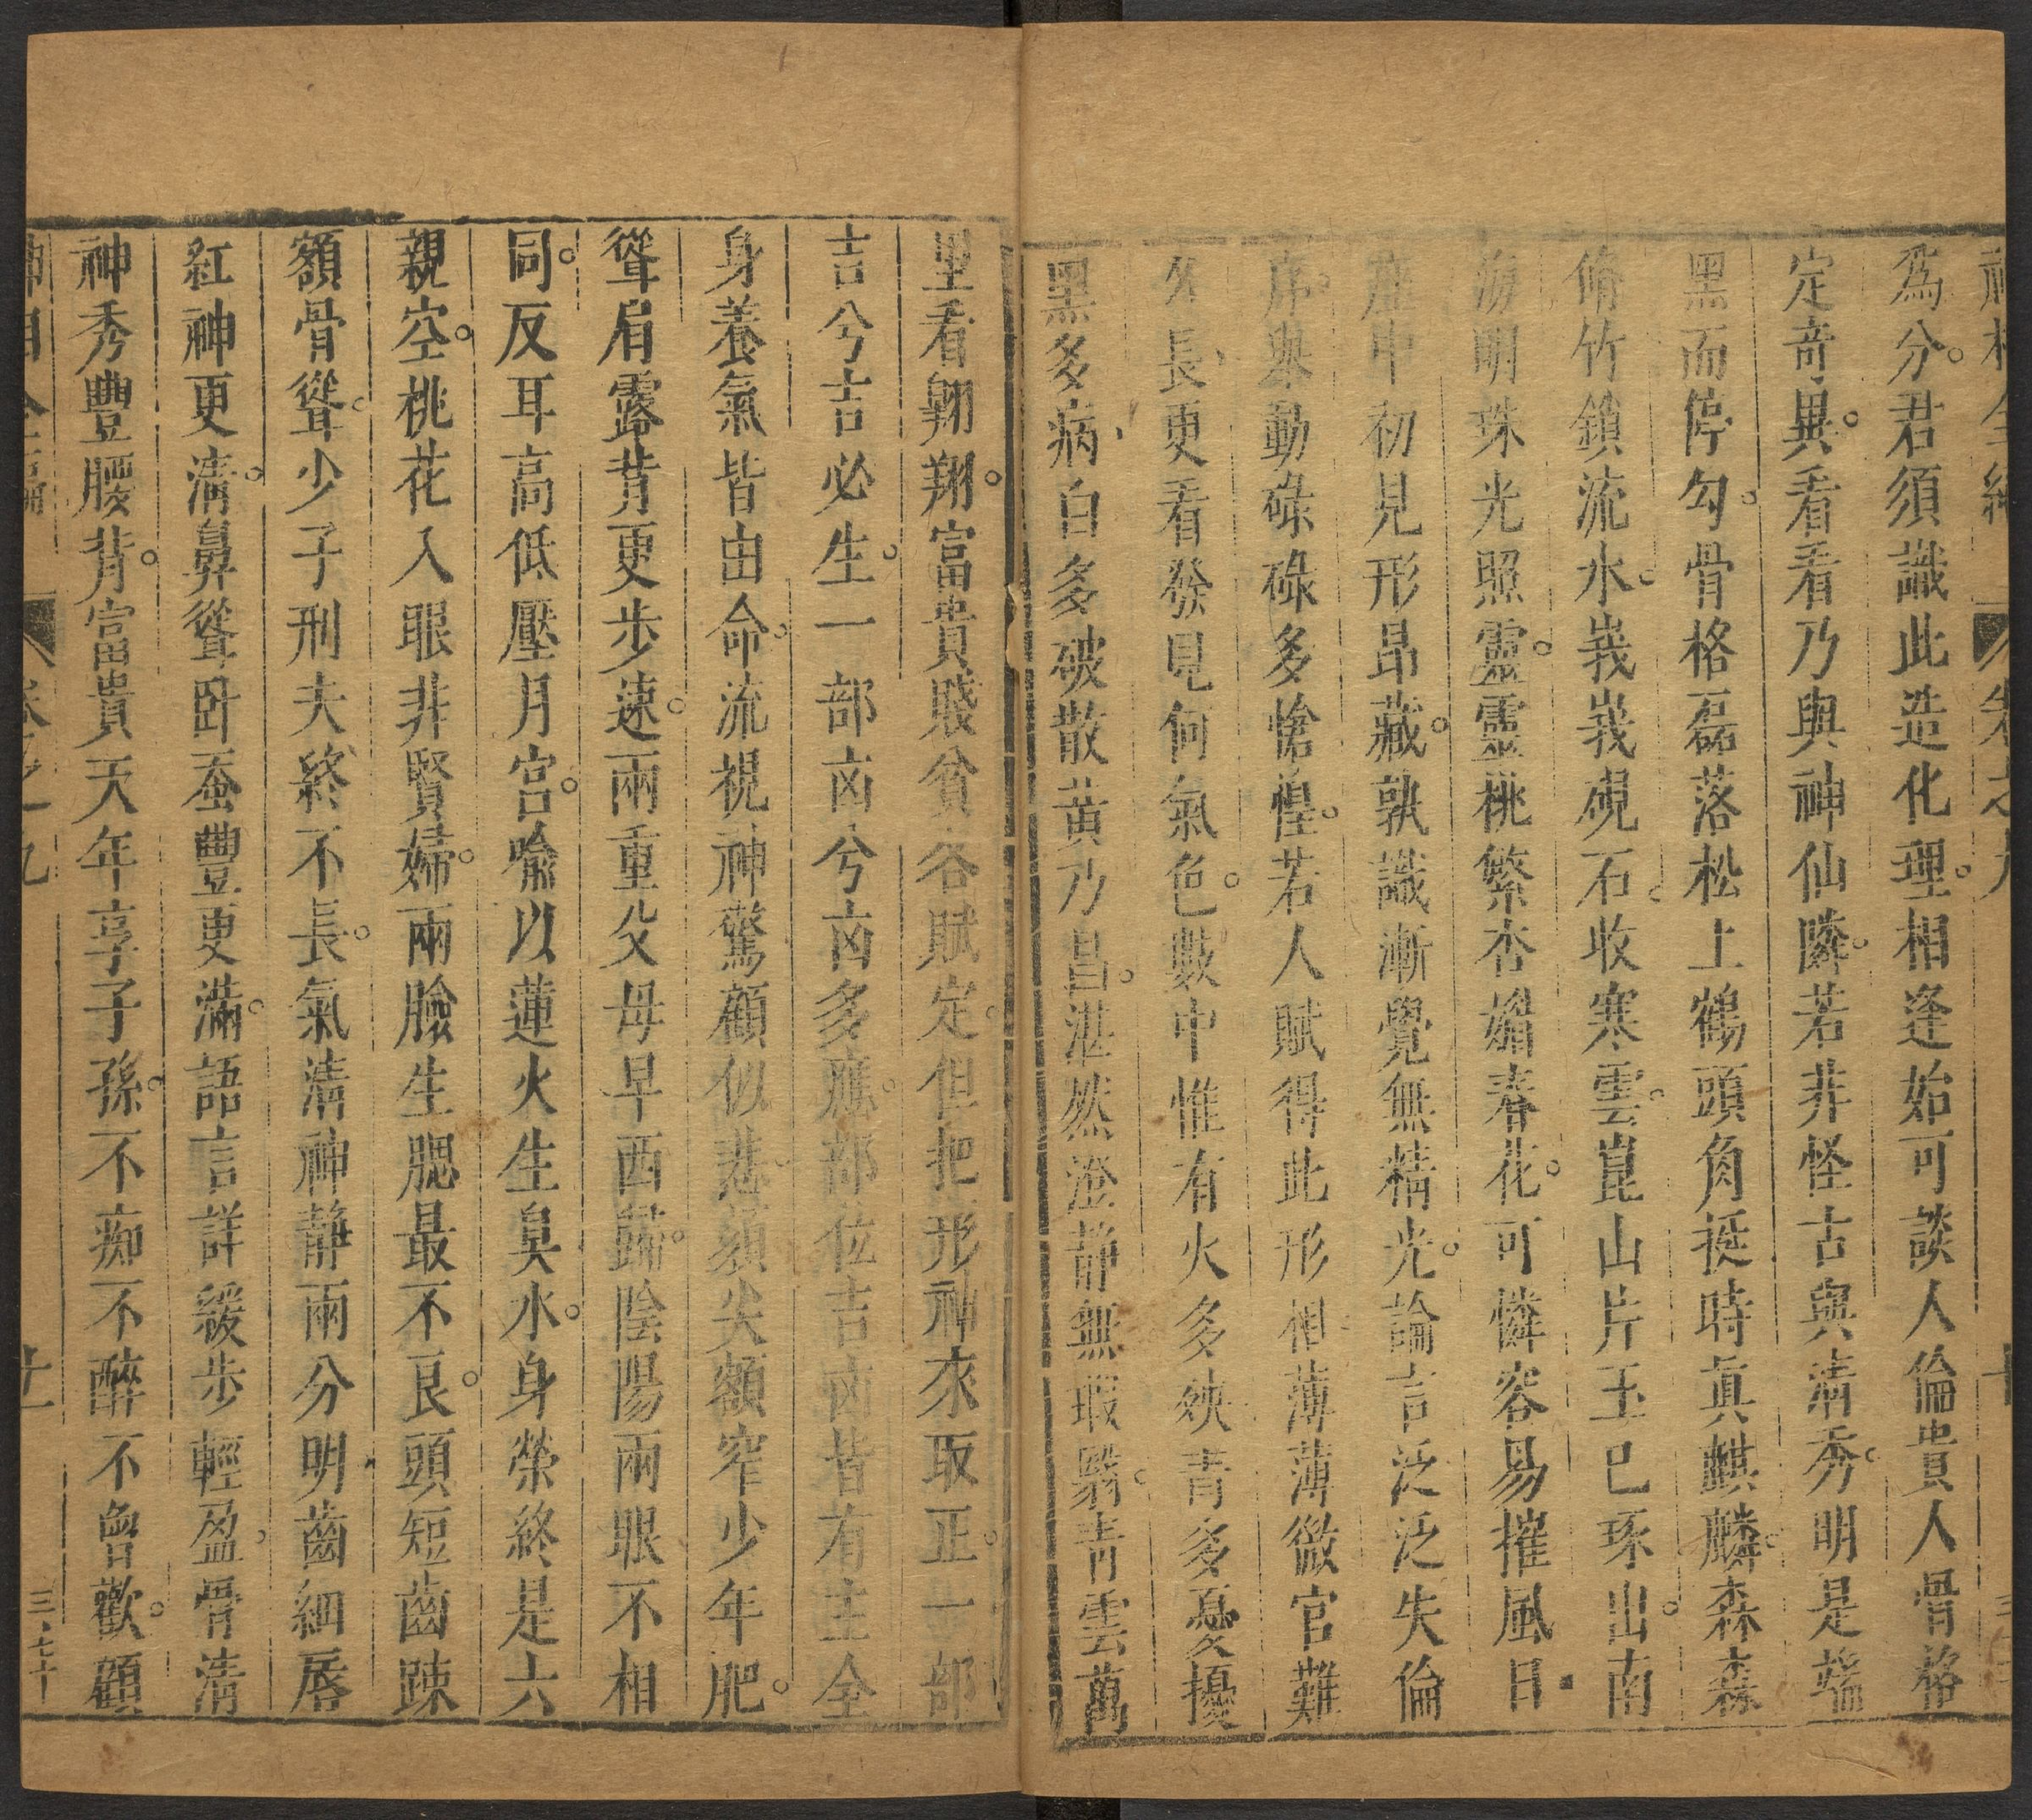 神相全編 卷之九 十
為分。君須識此造化理。相逢始可談人倫貴人骨格
定竒異。看看乃與神仙隣。若非怪古與清秀。明是端
黑而停勾。骨格磊落松上鶴頭角挺時眞麒麟。森森
脩竹鎖流水。峩峩硯石收寒雲。崑山片玉已琢出。南
海明珠光照靈。靈桃繁杏媚春花。可憐容易摧風日
座中初見形昂藏。孰識漸覺無精光。論言泛泛失倫
序。舉動碌碌多愴惶。若人賦得此形相。薄薄微官難
久長、更看發見何氣色。數中惟有火多殃青多憂擾
黑多病、白多破散黄乃昌。湛然澄静無瑕翳。青雲萬
里看翱翔。富貴賤貧各賦定。但把形神來取正。一部
吉兮吉必生。一部凶兮凶多應。部位吉凶皆有主全
身養氣皆由命。流視神驚顧似悲。頦尖額窄少年肥。
聳肩露背更步速。兩重父母早西歸。陰陽兩眼不相
同。反耳高低壓月宮。喩以蓮火生臭水。身榮終是六
親空。桃花入眼非賢婦。兩臉生腮最不良。頭短齒踈
額骨聳。少子刑夫終不長。氣清神静兩分明、齒細唇
紅神更清。鼻聳卧蚕豐更滿。語言詳緩步輕盈。骨清
神秀豐腰背。富貴天年享子孫。不痴不醉不曾歡。顧
神相全編 卷之九 十一 三七十